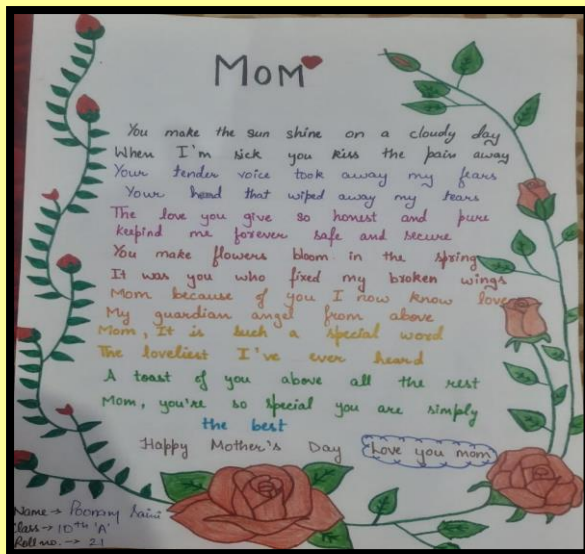 MOM
You make the sun shine on a cloudy day
When I'm sick you kiss the pain away
Your tender voice took away my fears
Your hand that wiped away my tears
The love you give so honest and pure
keepind me forever safe and secure
You make flowers bloom in the spring
It was you who fixed my broken wings
Mom because of you I now know love
My guardian angel from above
Mom, It is such a special word
The loveliest I've ever heard
A toast of you above all the rest
Mom, you're so special you are simply
the best
Happy Mother's Day Love you mom
Name → Poonam Saini
Class → 10th 'A'
Roll no. → 21